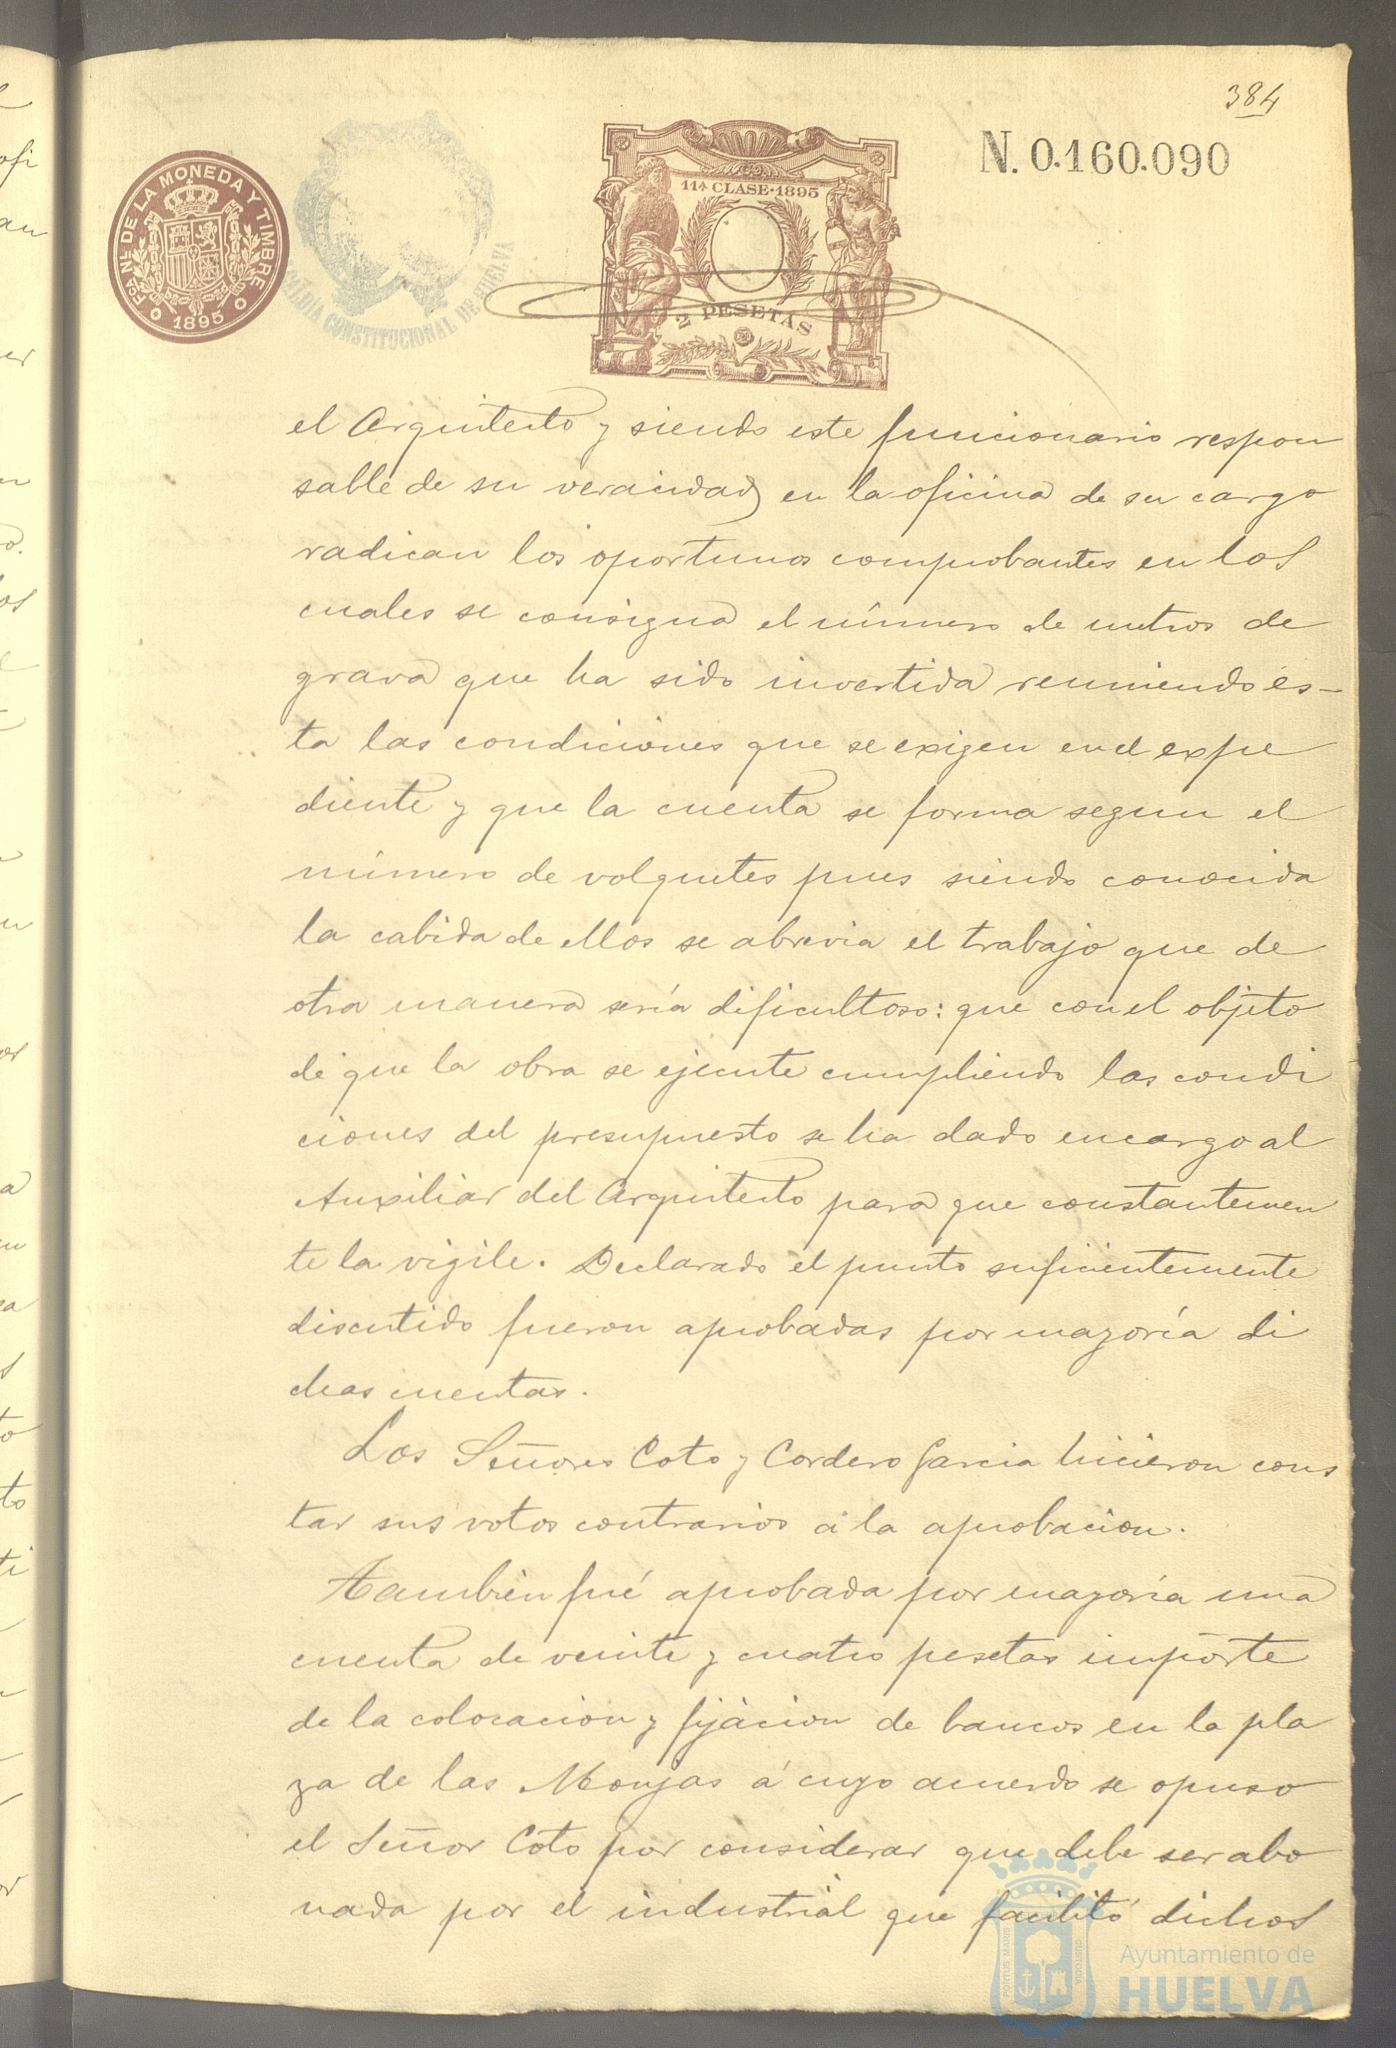 384
N. 0.160.090
FCA NL DE LA MONEDA Y TIMBRE
1895
ALCALDIA CONSTITUCIONAL DE HUELVA
11ª CLASE·1895
2 PESETAS
el Arquitecto y siendo este funcionario respon
sable de su veracidad en la oficina de su cargo
radican los oportunos comprobantes en los
cuales se consigna el número de metros de
grava que ha sido invertida reuniendo és-
ta las condiciones que se exigen en el expe
diente y que la cuenta se forma segun el
número de volquetes pues siendo conocida
la cabida de ellos se abrevia el trabajo que de
otra manera sería dificultoso: que con el objeto
de que la obra se ejecute cumpliendo las condi
ciones del presupuesto se ha dado encargo al
Auxiliar del Arquitecto para que constantemen
te la vigile. Declarado el punto suficientemente
discutido fueron aprobadas por mayoría di
chas cuentas.
Los Señores Coto y Cordero Garcia hicieron cons
tar sus votos contrarios á la aprobacion.
Tambien fué aprobada por mayoría una
cuenta de veinte y cuatro pesetas importe
de la colocacion y fijacion de bancos en la pla
za de las Monjas á cuyo acuerdo se opuso
el Señor Coto por considerar que debe ser abo
nada por el industrial que facilitó dichos
Ayuntamiento de
HUELVA